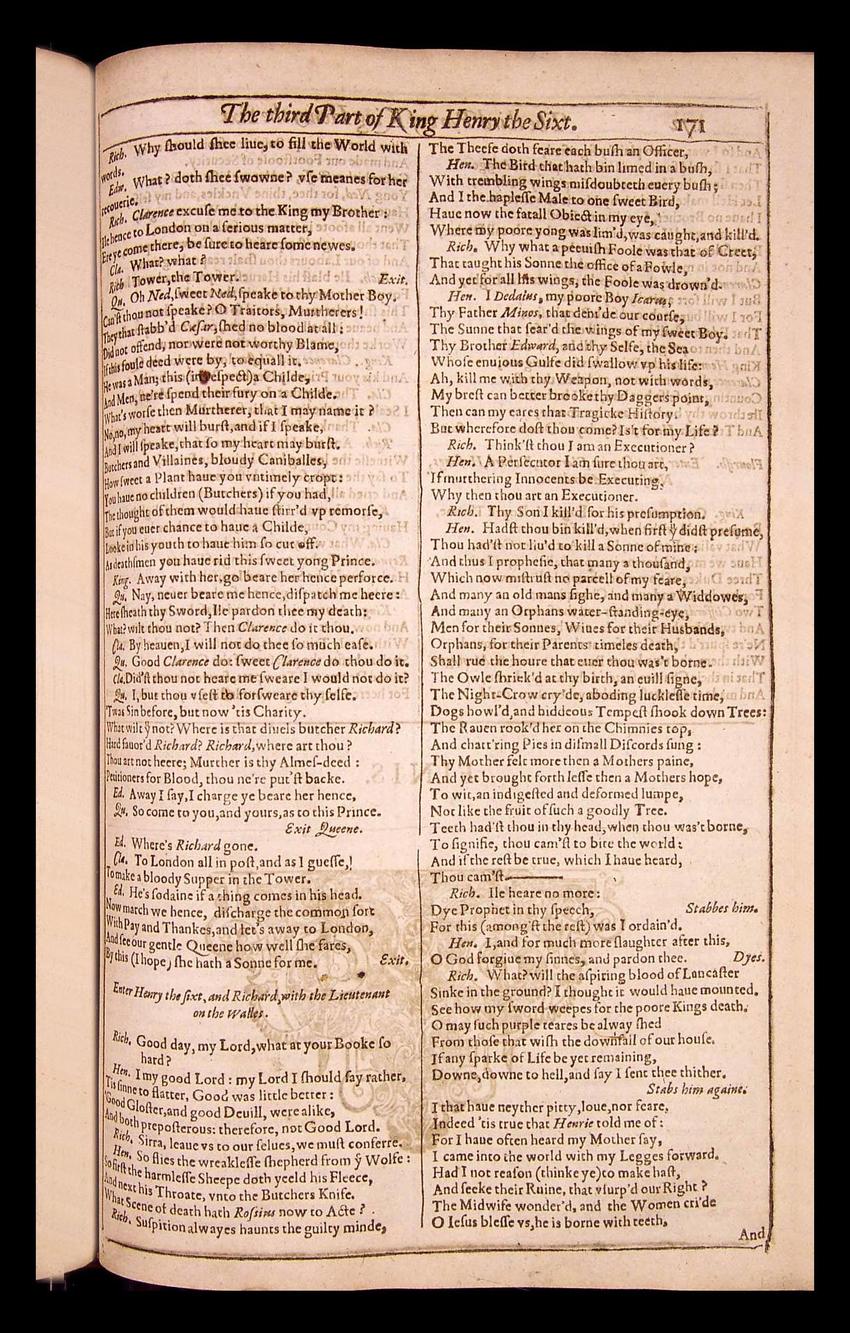 The third Part of King Henry the Sixt. 171
Rich. Why should shee liue, to fill the World with
words.
Edw. What? doth shee swowne? vse meanes for her
recouerie.
Rich. Clarence excuse me to the King my Brother:
Ile hence to London on a serious matter,
Ere ye come there, be sure to heare some newes.
Cla. What? what?
Rich Tower, the Tower. Exit.
Qu. Oh Ned, sweet Ned, speake to thy Mother Boy.
Can'st thou not speake? O Traitors, Murtherers!
They that stabb'd Cæsar, shed no blood at all:
Did not offend, nor were not worthy Blame,
If this foule deed were by, to equall it.
He was a Man; this (in respect) a Childe,
And Men, ne're spend their fury on a Childe.
What's worse then Murtherer, that I may name it?
No, no, my heart will burst, and if I speake,
And I will speake, that so my heart may burst.
Butchers and Villaines, bloudy Caniballes,
How sweet a Plant haue you vntimely cropt:
You haue no children (Butchers) if you had,
The thought of them would haue stirr'd vp remorse,
But if you euer chance to haue a Childe,
Looke in his youth to haue him so cut off.
As deathsmen you haue rid this sweet yong Prince.
King. Away with her, go beare her hence perforce.
Qu. Nay, neuer beare me hence, dispatch me heere:
Here sheath thy Sword, Ile pardon thee my death:
What? wilt thou not? Then Clarence do it thou.
Cla. By heauen, I will not do thee so much ease.
Qu. Good Clarence do: sweet Clarence do thou do it.
Cla. Did'st thou not heare me sweare I would not do it?
Qu. I, but thou vsest to forsweare thy selfe.
'Twas Sin before, but now 'tis Charity.
What wilt ÿ not? Where is that diuels butcher Richard?
Hard fauor'd Richard? Richard, where art thou?
Thou art not heere; Murther is thy Almes-deed:
Petitioners for Blood, thou ne're put'st backe.
Ed. Away I say, I charge ye beare her hence,
Qu. So come to you, and yours, as to this Prince.
Exit Queene.
Ed. Where's Richard gone.
Cla. To London all in post, and as I guesse,
To make a bloody Supper in the Tower.
Ed. He's sodaine if a thing comes in his head.
Now march we hence, discharge the common sort
With Pay and Thankes, and let's away to London,
And see our gentle Queene how well she fares,
By this (I hope) she hath a Sonne for me. Exit.
Enter Henry the sixt, and Richard, with the Lieutenant
on the Walles.
Rich. Good day, my Lord, what at your Booke so
hard?
Hen. I my good Lord: my Lord I should say rather,
Tis sinne to flatter, Good was little better:
'Good Gloster, and good Deuill, were alike,
And both preposterous: therefore, not Good Lord.
Rich. Sirra, leaue vs to our selues, we must conferre.
Hen. So flies the wreaklesse shepherd from ÿ Wolfe:
So first the harmlesse Sheepe doth yeeld his Fleece,
And next his Throate, vnto the Butchers Knife.
What Scene of death hath Rossius now to Acte?
Rich. Suspition alwayes haunts the guilty minde,
The Theefe doth feare each bush an Officer,
Hen. The Bird that hath bin limed in a bush,
With trembling wings misdoubteth euery bush;
And I the haplesse Male to one sweet Bird,
Haue now the fatall Obiect in my eye,
Where my poore yong was lim'd, was caught, and kill'd.
Rich. Why what a peeuish Foole was that of Creet,
That taught his Sonne the office of a Fowle,
And yet for all his wings, the Foole was drown'd.
Hen. I Dedalus, my poore Boy Icarus,
Thy Father Minos, that deni'de our course,
The Sunne that sear'd the wings of my sweet Boy.
Thy Brother Edward, and thy Selfe, the Sea
Whose enuious Gulfe did swallow vp his life:
Ah, kill me with thy Weapon, not with words,
My brest can better brooke thy Daggers point,
Then can my eares that Tragicke History.
But wherefore dost thou come? Is't for my Life?
Rich. Think'st thou I am an Executioner?
Hen. A Persecutor I am sure thou art,
If murthering Innocents be Executing,
Why then thou art an Executioner.
Rich. Thy Son I kill'd for his presumption.
Hen. Hadst thou bin kill'd, when first ÿ didst presume,
Thou had'st not liu'd to kill a Sonne of mine:
And thus I prophesie, that many a thousand,
Which now mistrust no parcell of my feare,
And many an old mans sighe, and many a Widdowes,
And many an Orphans water-standing-eye,
Men for their Sonnes, Wiues for their Husbands,
Orphans, for their Parents timeles death,
Shall rue the houre that euer thou was't borne.
The Owle shriek'd at thy birth, an euill signe,
The Night-Crow cry'de, aboding lucklesse time,
Dogs howl'd, and hiddeous Tempest shook down Trees:
The Rauen rook'd her on the Chimnies top,
And chatt'ring Pies in dismall Discords sung:
Thy Mother felt more then a Mothers paine,
And yet brought forth lesse then a Mothers hope,
To wit, an indigested and deformed lumpe,
Not like the fruit of such a goodly Tree.
Teeth had'st thou in thy head, when thou was't borne,
To signifie, thou cam'st to bite the world:
And if the rest be true, which I haue heard,
Thou cam'st——
Rich. Ile heare no more:
Dye Prophet in thy speech, Stabbes him.
For this (among'st the rest) was I ordain'd.
Hen. I, and for much more slaughter after this,
O God forgiue my sinnes, and pardon thee. Dyes.
Rich. What? will the aspiring blood of Lancaster
Sinke in the ground? I thought it would haue mounted.
See how my sword weepes for the poore Kings death.
O may such purple teares be alway shed
From those that wish the downfall of our house.
If any sparke of Life be yet remaining,
Downe, downe to hell, and say I sent thee thither.
Stabs him againe.
I that haue neyther pitty, loue, nor feare,
Indeed 'tis true that Henrie told me of:
For I haue often heard my Mother say,
I came into the world with my Legges forward.
Had I not reason (thinke ye) to make hast,
And seeke their Ruine, that vsurp'd our Right?
The Midwife wonder'd, and the Women cri'de
O Iesus blesse vs, he is borne with teeth,
And